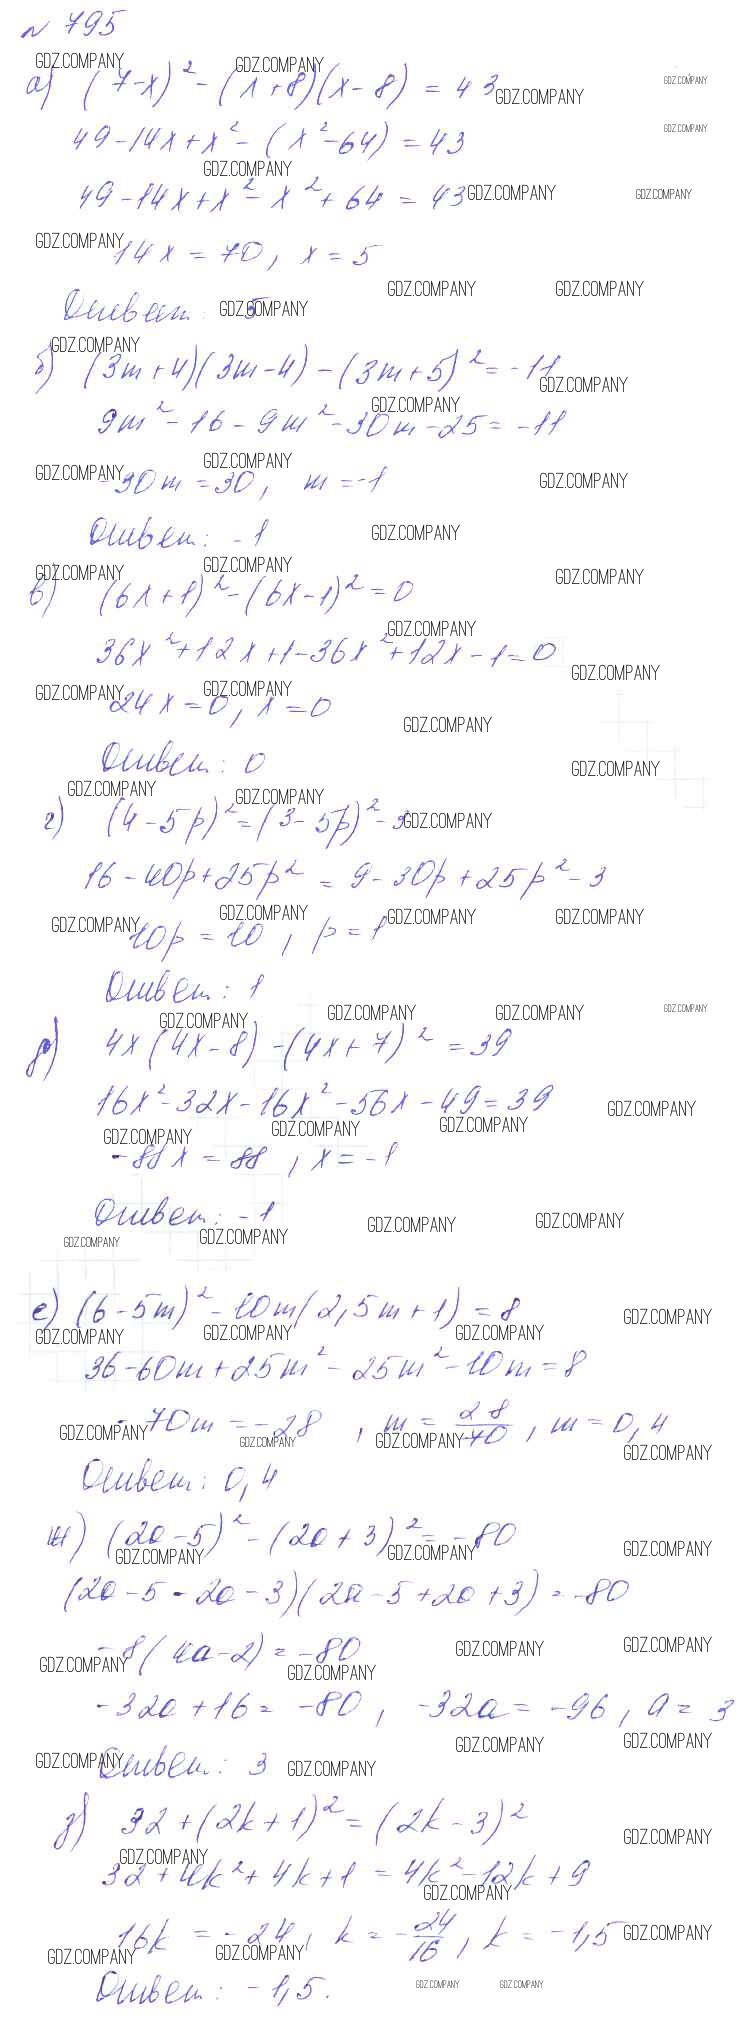 N 795
а) (7-x)² - (x+8)(x-8) = 43
49-14x+x² - (x²-64) = 43
49-14x+x²-x²+64 = 43
14x = 70, x = 5
Ответ: 5
б) (3m+4)(3m-4) - (3m+5)² = -11
9m²-16-9m²-30m-25 = -11
-30m = 30, m = -1
Ответ: -1
в) (6x+1)² - (6x-1)² = 0
36x²+12x+1-36x²+12x-1 = 0
24x = 0, x = 0
Ответ: 0
г) (4-5p)² = (3-5p)² - 3
16-40p+25p² = 9-30p+25p²-3
10p = 10, p = 1
Ответ: 1
д) 4x(4x-8) - (4x+7)² = 39
16x²-32x-16x²-56x-49 = 39
-88x = 88, x = -1
Ответ: -1
е) (6-5m)² - 10m(2,5m+1) = 8
36-60m+25m²-25m²-10m = 8
-70m = -28, m = 28/70, m = 0,4
Ответ: 0,4
ж) (2a-5)² - (2a+3)² = -80
(2a-5-2a-3)(2a-5+2a+3) = -80
-8(4a-2) = -80
-32a+16 = -80, -32a = -96, a = 3
Ответ: 3
з) 32+(2k+1)² = (2k-3)²
32+4k²+4k+1 = 4k²-12k+9
16k = -24, k = -24/16, k = -1,5
Ответ: -1,5.
GDZ.COMPANY